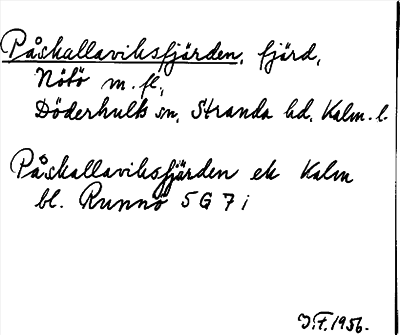 Påskallaviksfjärden, fjärd,
Nötö m. fl,
Döderhults sn, Stranda hd, Kalm. l.
Påskallaviksfjärden ek Kalm
bl. Runnö 5G 7i
J.F. 1956.